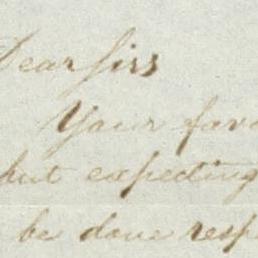 Dear Sirs
Your favo
but expecting
be done resp